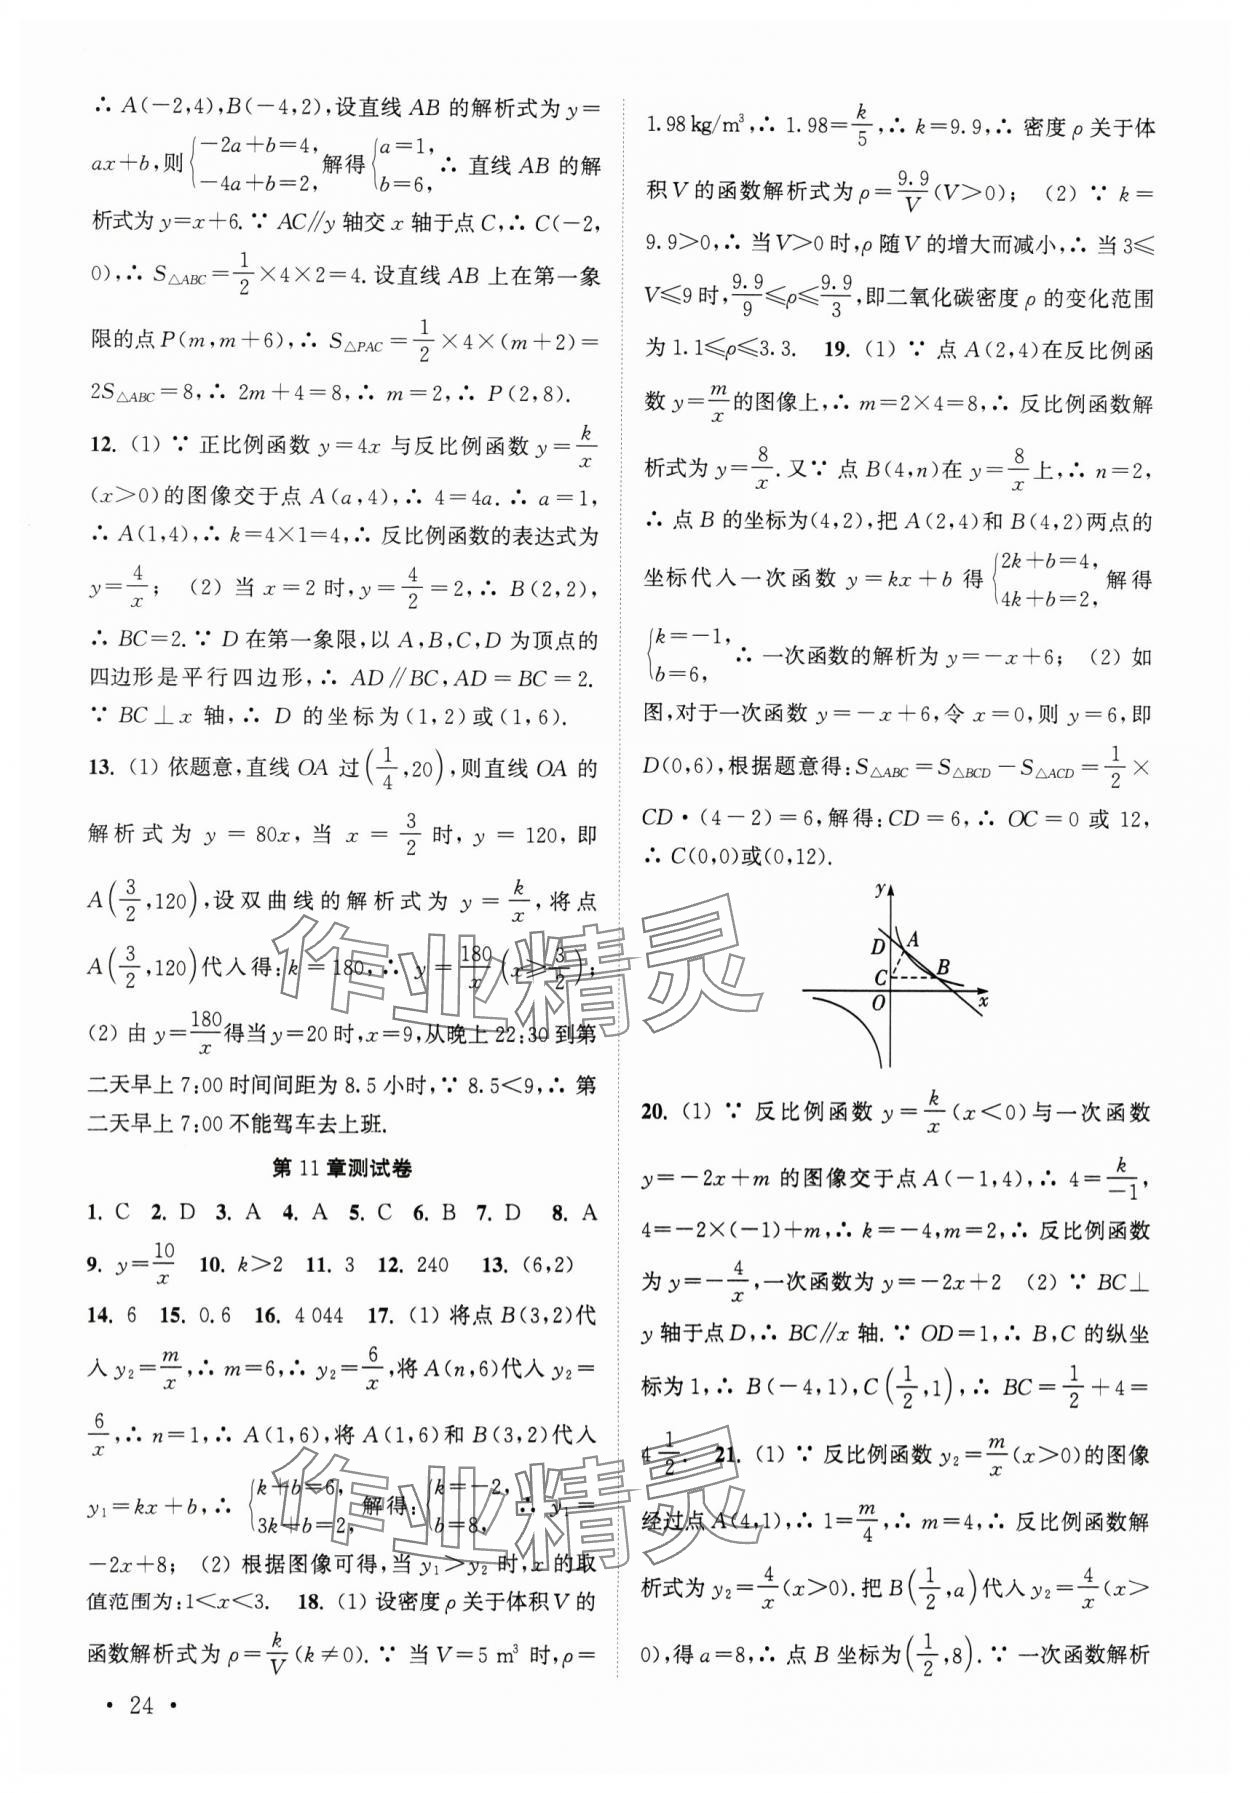 ∴ A(−2,4),B(−4,2),设直线 AB 的解析式为 y=
ax+b,则{−2a+b=4, −4a+b=2, 解得{a=1, b=6, ∴ 直线 AB 的解
析式为 y=x+6.∵ AC∥y 轴交 x 轴于点 C,∴ C(−2,
0),∴ S△ABC=1/2×4×2=4.设直线 AB 上在第一象
限的点 P(m,m+6),∴ S△PAC=1/2×4×(m+2)=
2S△ABC=8,∴ 2m+4=8,∴ m=2,∴ P(2,8).
12. (1) ∵ 正比例函数 y=4x 与反比例函数 y=k/x
(x>0)的图像交于点 A(a,4),∴ 4=4a.∴ a=1,
∴ A(1,4),∴ k=4×1=4,∴ 反比例函数的表达式为
y=4/x; (2) 当 x=2 时,y=4/2=2,∴ B(2,2),
∴ BC=2.∵ D 在第一象限,以 A,B,C,D 为顶点的
四边形是平行四边形,∴ AD∥BC,AD=BC=2.
∵ BC⊥x 轴,∴ D 的坐标为(1,2)或(1,6).
13. (1) 依题意,直线 OA 过(1/4,20),则直线 OA 的
解析式为 y=80x,当 x=3/2 时,y=120,即
A(3/2,120),设双曲线的解析式为 y=k/x,将点
A(3/2,120)代入得:k=180,∴ y=180/x(x≥3/2);
(2) 由 y=180/x得当 y=20 时,x=9,从晚上 22:30 到第
二天早上 7:00 时间间距为 8.5 小时,∵ 8.5<9,∴ 第
二天早上 7:00 不能驾车去上班.
第 11 章测试卷
1. C 2. D 3. A 4. A 5. C 6. B 7. D 8. A
9. y=10/x 10. k>2 11. 3 12. 240 13. (6,2)
14. 6 15. 0.6 16. 4 044 17. (1) 将点 B(3,2)代
入 y₂=m/x,∴ m=6,∴ y₂=6/x,将 A(n,6)代入 y₂=
6/x,∴ n=1,∴ A(1,6),将 A(1,6)和 B(3,2)代入
y₁=kx+b,∴ {k+b=6, 3k+b=2, 解得:{k=−2, b=8, ∴ y₁=
−2x+8; (2) 根据图像可得,当 y₁>y₂ 时,x 的取
值范围为:1<x<3. 18. (1) 设密度 ρ 关于体积 V 的
函数解析式为 ρ=k/V(k≠0).∵ 当 V=5 m³ 时,ρ=
• 24 •
1.98 kg/m³,∴ 1.98=k/5,∴ k=9.9,∴ 密度 ρ 关于体
积 V 的函数解析式为 ρ=9.9/V(V>0); (2) ∵ k=
9.9>0,∴ 当 V>0 时,ρ 随 V 的增大而减小,∴ 当 3≤
V≤9 时,9.9/9≤ρ≤9.9/3,即二氧化碳密度 ρ 的变化范围
为 1.1≤ρ≤3.3. 19. (1) ∵ 点 A(2,4)在反比例函
数 y=m/x的图像上,∴ m=2×4=8,∴ 反比例函数解
析式为 y=8/x.又∵ 点 B(4,n)在 y=8/x上,∴ n=2,
∴ 点 B 的坐标为(4,2),把 A(2,4)和 B(4,2)两点的
坐标代入一次函数 y=kx+b 得 {2k+b=4, 4k+b=2, 解得
{k=−1, b=6, ∴ 一次函数的解析为 y=−x+6; (2) 如
图,对于一次函数 y=−x+6,令 x=0,则 y=6,即
D(0,6),根据题意得:S△ABC=S△BCD−S△ACD=1/2×
CD·(4−2)=6,解得:CD=6,∴ OC=0 或 12,
∴ C(0,0)或(0,12).
y
D
A
C
B
O
x
20. (1) ∵ 反比例函数 y=k/x(x<0)与一次函数
y=−2x+m 的图像交于点 A(−1,4),∴ 4=k/−1,
4=−2×(−1)+m,∴ k=−4,m=2,∴ 反比例函数
为 y=−4/x,一次函数为 y=−2x+2 (2) ∵ BC⊥
y 轴于点 D,∴ BC∥x 轴.∵ OD=1,∴ B,C 的纵坐
标为 1,∴ B(−4,1),C(1/2,1),∴ BC=1/2+4=
4 1/2. 21. (1) ∵ 反比例函数 y₂=m/x(x>0)的图像
经过点 A(4,1),∴ 1=m/4,∴ m=4,∴ 反比例函数解
析式为 y₂=4/x(x>0).把 B(1/2,a)代入 y₂=4/x(x>
0),得 a=8,∴ 点 B 坐标为(1/2,8).∵ 一次函数解析
作业精灵
作业精灵